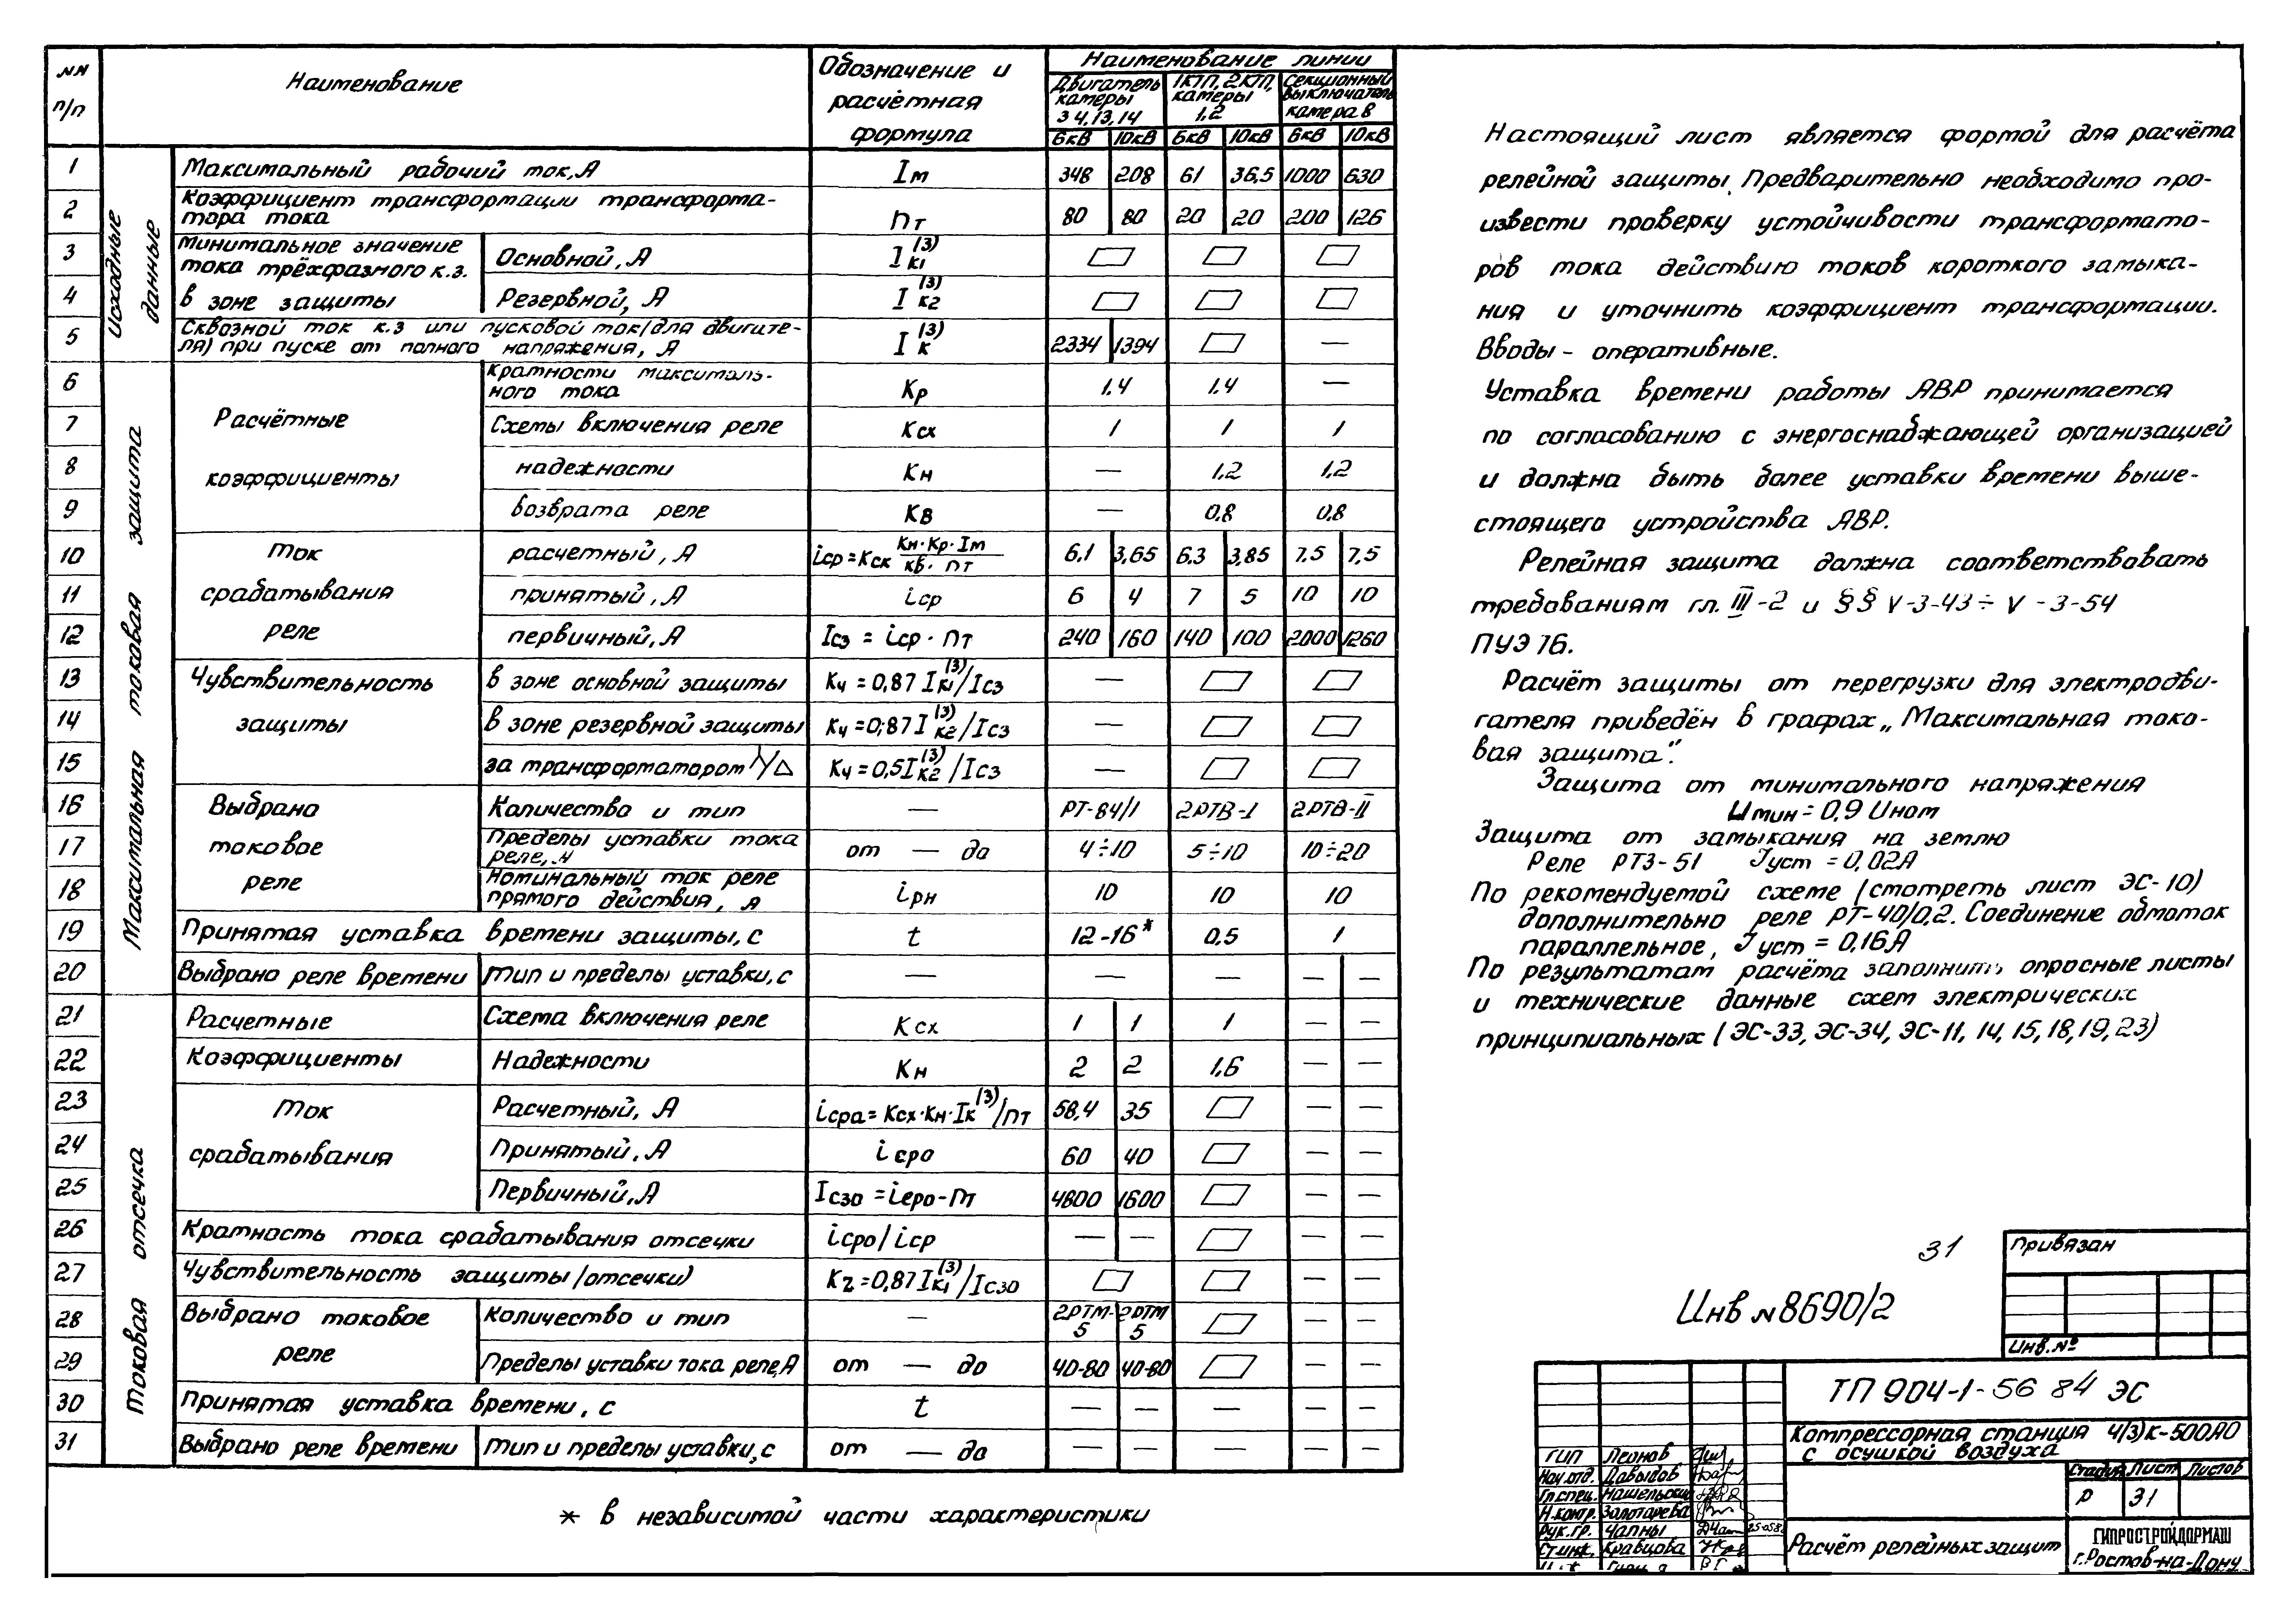 NN п/п Наименование Обозначение и расчётная формула Наименование линии
Двигатель камеры 3 4, 13, 14 1КТП, 2КТП, камеры 1,2 Секционный выключатель камера 8
6кВ 10кВ 6кВ 10кВ 6кВ 10кВ
Исходные данные
1 Максимальный рабочий ток, А Iм 348 208 61 36,5 1000 630
2 Коэффициент трансформации трансформатора тока nт 80 80 20 20 200 126
Минимальное значение тока трёхфазного к.з. в зоне защиты
3 Основной, А I(3) к1
4 Резервной, А I(3) к2
5 Сквозной ток к.з или пусковой ток (для двигателя) при пуске от полного напряжения, А I(3) к 2334 1394 —
Максимальная токовая защита
Расчётные коэффициенты
6 Кратности максимального тока Kр 1.4 1.4 —
7 Схемы включения реле Kсх 1 1 1
8 надежности Kн — 1,2 1,2
9 возврата реле Kв — 0,8 0,8
Ток срабатывания реле
10 расчетный, А iср = Kск Kн·Kр·Iм / Kв·nт 6,1 3,65 6.3 3,85 7.5 7,5
11 принятый, А iср 6 4 7 5 10 10
12 первичный, А Iсз = iср · nт 240 160 140 100 2000 1260
Чувствительность защиты
13 в зоне основной защиты Kч = 0,87 I(3) к1 / Iсз —
14 в зоне резервной защиты Kч = 0,87 I(3) к2 / Iсз —
15 за трансформатором Y/Δ Kч = 0,5 I(3) к2 / Iсз —
Выбрано токовое реле
16 Количество и тип — РТ-84/1 2РТВ-I 2РТВ-II
17 Пределы уставки тока реле, А от — до 4÷10 5÷10 10÷20
18 Номинальный ток реле прямого действия, А iрн 10 10 10
19 Принятая уставка времени защиты, с t 12-16* 0,5 1
20 Выбрано реле времени Тип и пределы уставки, с — — — — —
Токовая отсечка
Расчетные Коэффициенты
21 Схема включения реле Kсх 1 1 1 — —
22 Надежности Kн 2 2 1,6 — —
Ток срабатывания
23 Расчетный, А iсра = Kсх·Kн·Iк(3)/nт 58,4 35 — —
24 Принятый, А iсро 60 40 — —
25 Первичный, А Iсзо = iсро-nт 4800 1600 — —
26 Кратность тока срабатывания отсечки iсро/iср — — — —
27 Чувствительность защиты (отсечки) K2 = 0,87 I(3) к1 / Iсзо — —
Выбрано токовое реле
28 Количество и тип — 2РТМ-5 2РТМ 5 — —
29 Пределы уставки тока реле, А от — до 40-80 40-80 — —
30 Принятая уставка времени, с t — — — — —
31 Выбрано реле времени Тип и пределы уставки, с от — до — — — — —
* в независимой части характеристики
Настоящий лист является формой для расчёта
релейной защиты. Предварительно необходимо про-
извести проверку устойчивости трансформато-
ров тока действию токов короткого замыка-
ния и уточнить коэффициент трансформации.
Вводы - оперативные.
Уставка времени работы АВР принимается
по согласованию с энергоснабжающей организацией
и должна быть более уставки времени выше-
стоящего устройства АВР.
Релейная защита должна соответствовать
требованиям гл. III-2 и §§ V-3-43÷ V-3-54
ПУЭ 76.
Расчёт защиты от перегрузки для электродви-
гателя приведён в графах „Максимальная токо-
вая защита".
Защита от минимального напряжения
Uмин = 0,9 Uном
Защита от замыкания на землю
Реле РТЗ-51 Jуст = 0,02А
По рекомендуемой схеме (смотреть лист ЭС-10)
дополнительно реле РТ-40/0,2. Соединение обмоток
параллельное, Jуст = 0,16А
По результатам расчёта заполнить опросные листы
и технические данные схем электрических
принципиальных (ЭС-33, ЭС-34, ЭС-11, 14, 15, 18, 19, 23)
31
Инв N8690/2
Привязан
Инв. №
ТП 904-1-56 84 ЭС
Компрессорная станция 4(3)К-500АО
с осушкой воздуха
Стадия Лист Листов
Р 31
Расчёт релейных защит
ГИПРОСТРОЙДОРМАШ
г. Ростов-на-Дону
ГИП Леонов
Нач. отд. Давыдов
Гл. спец.
Н. контр. Золотарева
Рук. гр. Чапны
Ст. инж. Кравцова